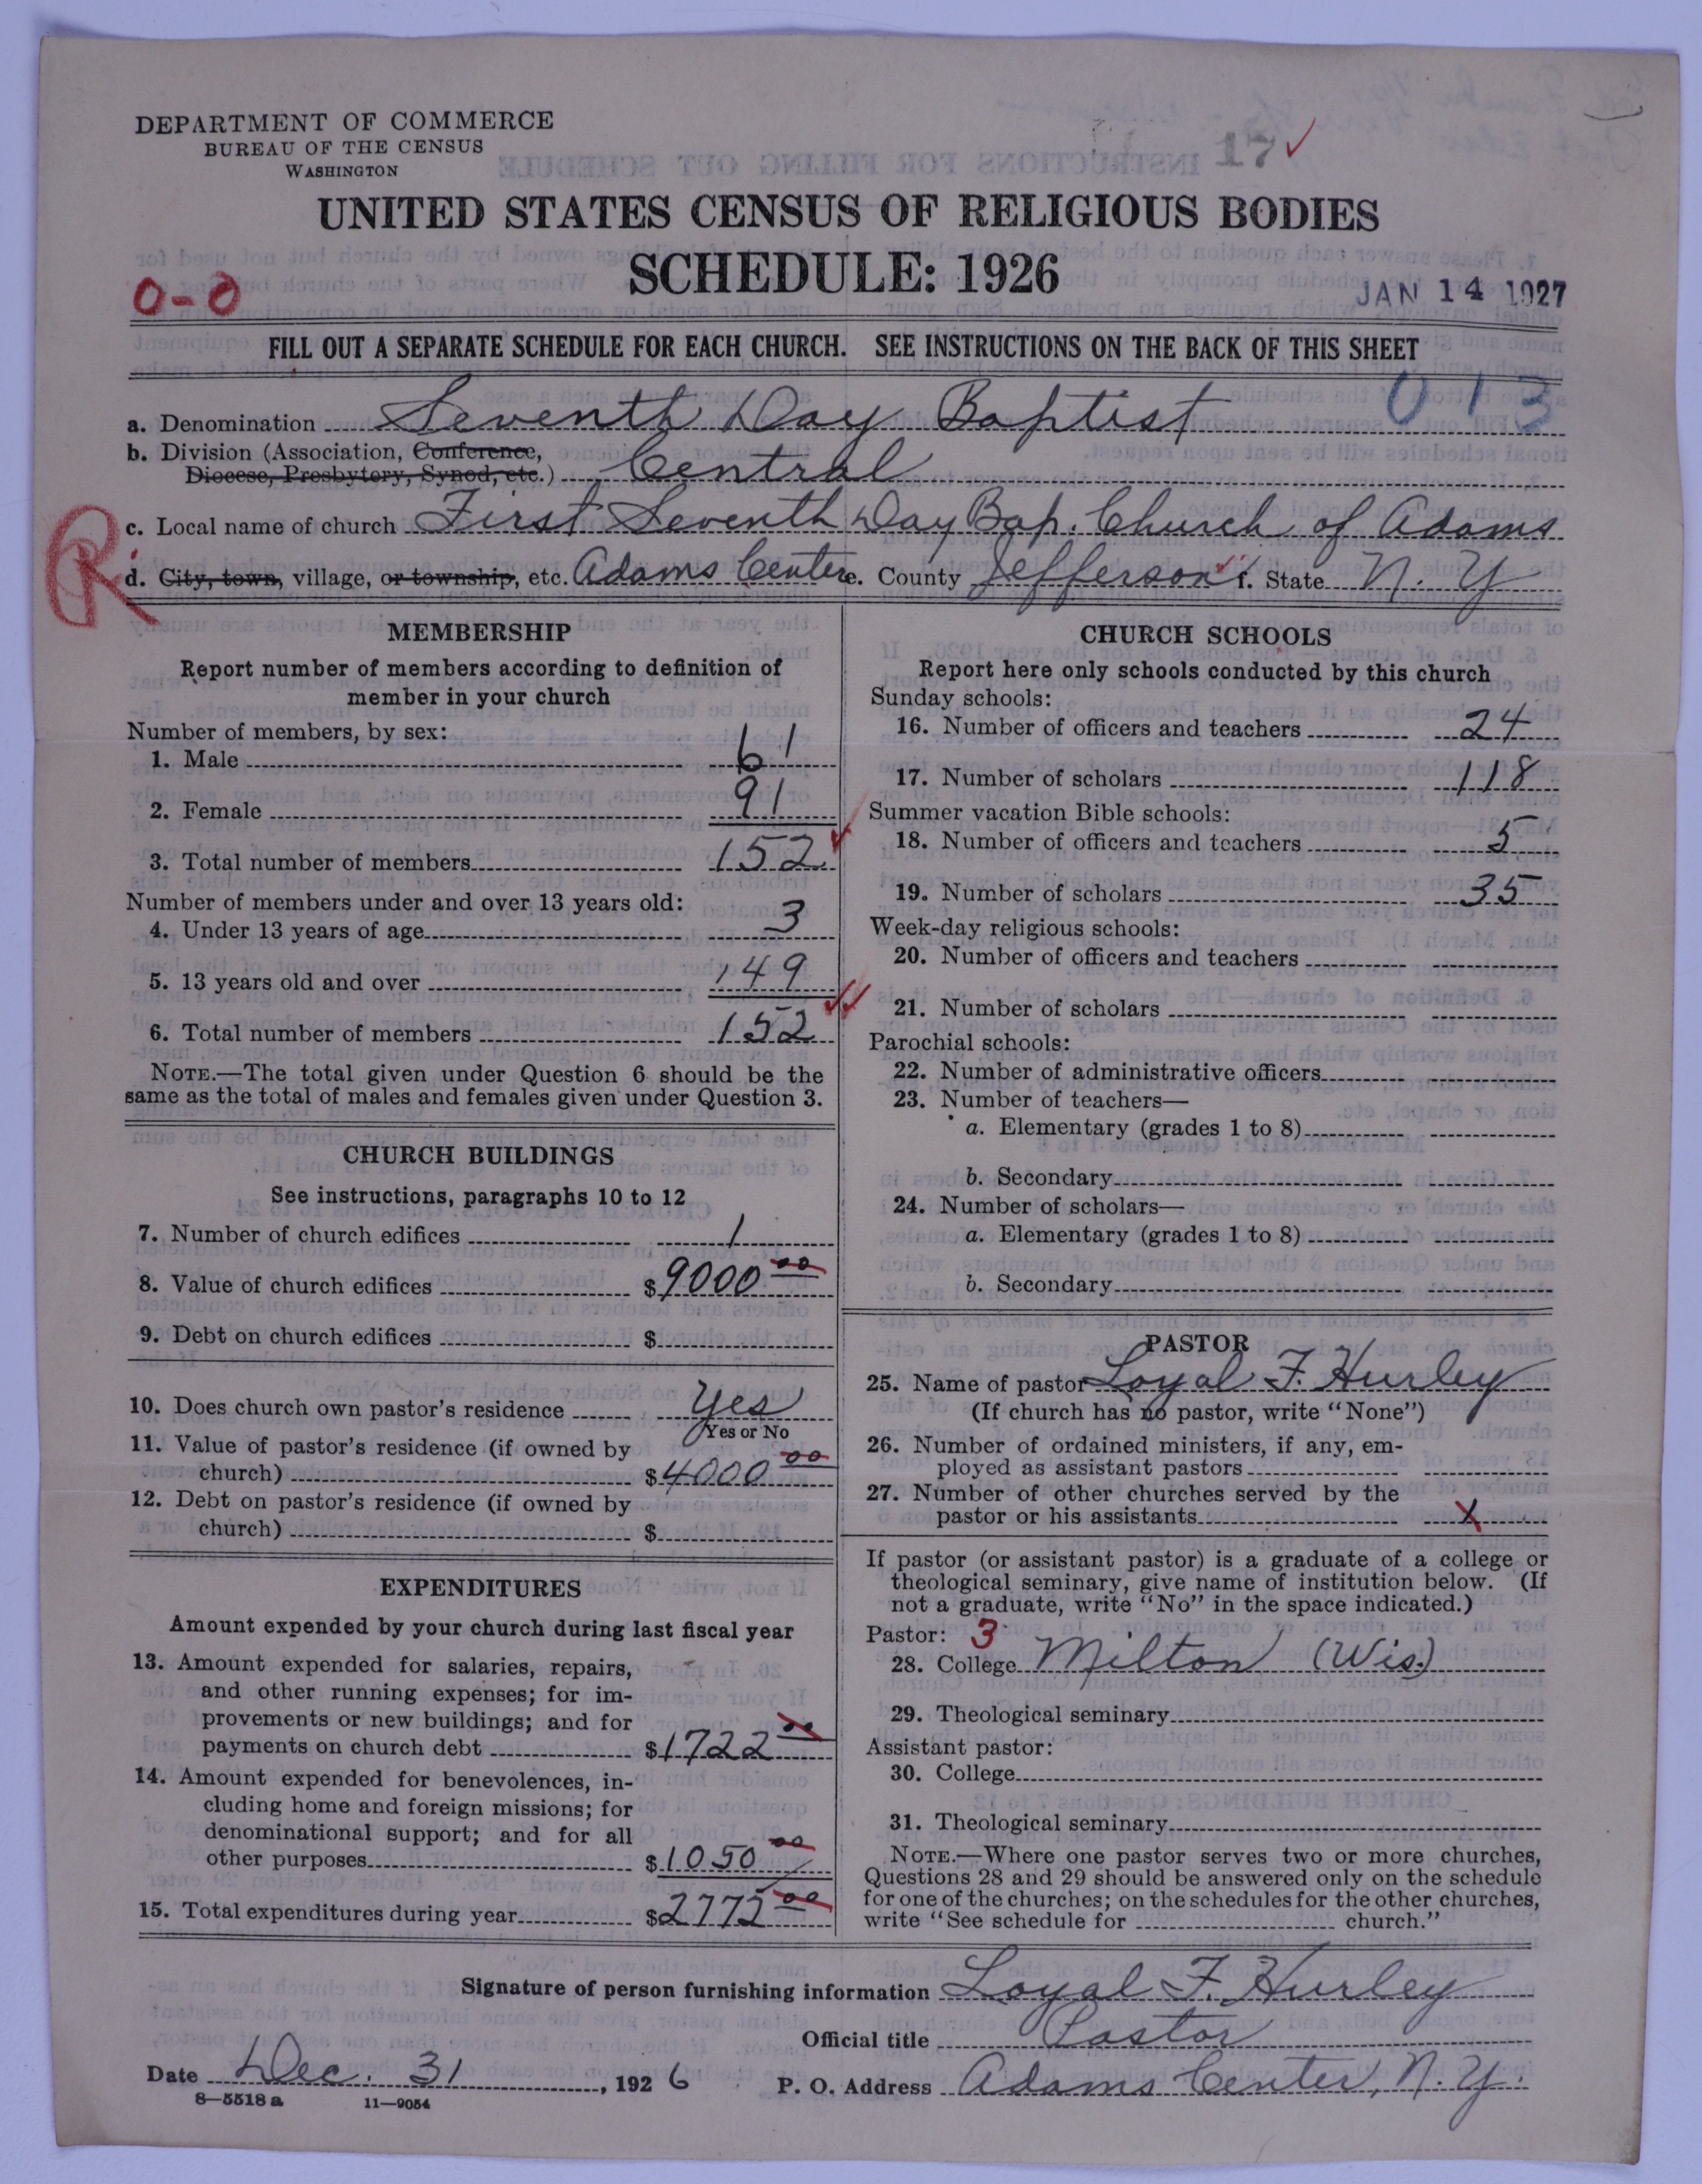 DEPARTMENT OF COMMERCE
BUREAU OF THE CENSUS
WASHINGTON
17 ✓
UNITED STATES CENSUS OF RELIGIOUS BODIES
SCHEDULE: 1926
0-0
JAN 14 1927
FILL OUT A SEPARATE SCHEDULE FOR EACH CHURCH. SEE INSTRUCTIONS ON THE BACK OF THIS SHEET
013
a. Denomination Seventh Day Baptist
b. Division (Association, Conference,
Diocese, Presbytery, Synod, etc.) Central
c. Local name of church First Seventh Day Bap. Church of Adams
R
d. City, town, village, or township, etc. Adams Center e. County Jefferson f. State N. Y
MEMBERSHIP
Report number of members according to definition of
member in your church
Number of members, by sex:
1. Male 61
2. Female 91
3. Total number of members 152
Number of members under and over 13 years old:
4. Under 13 years of age 3
5. 13 years old and over 149
6. Total number of members 152
NOTE.—The total given under Question 6 should be the
same as the total of males and females given under Question 3.
CHURCH BUILDINGS
See instructions, paragraphs 10 to 12
7. Number of church edifices 1
8. Value of church edifices $9000 00
9. Debt on church edifices $
10. Does church own pastor's residence Yes
Yes or No
11. Value of pastor's residence (if owned by
church) $4000 00
12. Debt on pastor's residence (if owned by
church) $
EXPENDITURES
Amount expended by your church during last fiscal year
13. Amount expended for salaries, repairs,
and other running expenses; for im-
provements or new buildings; and for
payments on church debt $1722 00
14. Amount expended for benevolences, in-
cluding home and foreign missions; for
denominational support; and for all
other purposes $1050 00
15. Total expenditures during year $2772 00
CHURCH SCHOOLS
Report here only schools conducted by this church
Sunday schools:
16. Number of officers and teachers 24
17. Number of scholars 118
Summer vacation Bible schools:
18. Number of officers and teachers 5
19. Number of scholars 35
Week-day religious schools:
20. Number of officers and teachers
21. Number of scholars
Parochial schools:
22. Number of administrative officers
23. Number of teachers—
a. Elementary (grades 1 to 8)
b. Secondary
24. Number of scholars—
a. Elementary (grades 1 to 8)
b. Secondary
PASTOR
25. Name of pastor Loyal F. Hurley
(If church has no pastor, write "None")
26. Number of ordained ministers, if any, em-
ployed as assistant pastors
27. Number of other churches served by the
pastor or his assistants X
If pastor (or assistant pastor) is a graduate of a college or
theological seminary, give name of institution below. (If
not a graduate, write "No" in the space indicated.)
Pastor: 3
28. College Milton (Wis.)
29. Theological seminary
Assistant pastor:
30. College
31. Theological seminary
NOTE.—Where one pastor serves two or more churches,
Questions 28 and 29 should be answered only on the schedule
for one of the churches; on the schedules for the other churches,
write "See schedule for church."
Signature of person furnishing information Loyal F. Hurley
Official title Pastor
Date Dec. 31, 1926 P. O. Address Adams Center, N. Y.
8—5518a 11—9054